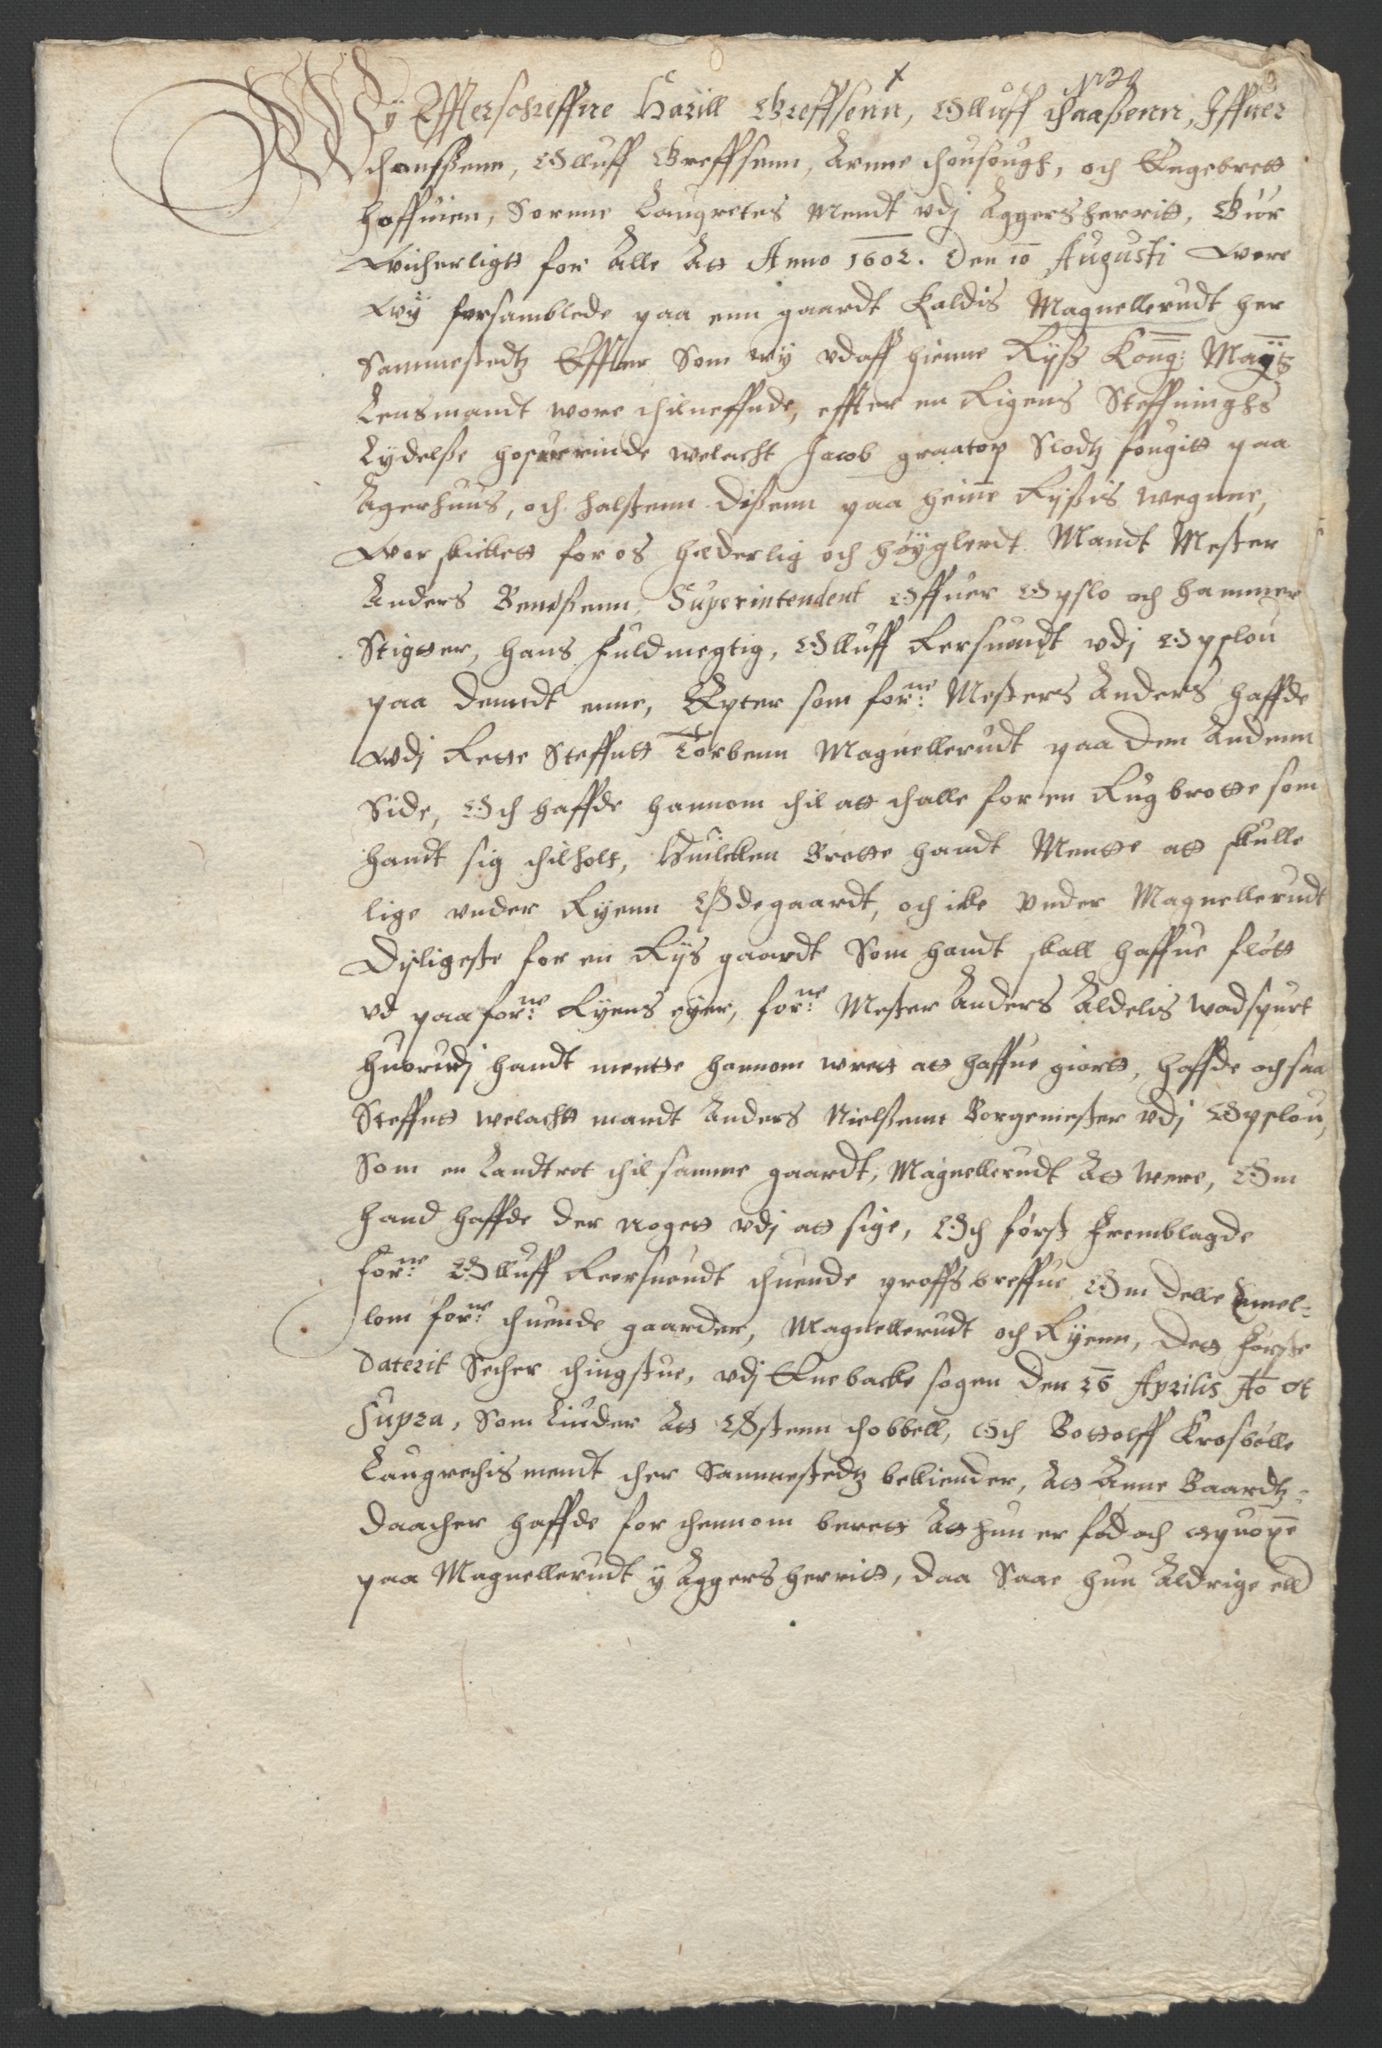 N 29
Wy Effterschreffne Harill Greffsenn, Olluff thaaßenn, Iffuer
thonßenn, Olluff Greffsenn, Arnne thousough, och Engebrett
hoffuien, Sorenne Laugrettes Mendt vdj Aggersherritt, Giør
Witherligtt for Alle Att Anno 1602. Den 10 Augusti Wore
Wy forsamblede paa enn gaardt Kaldis Magnellerudt her
Sammestedtz Effter Som wy vdaff hienne Ryß Kong: Maÿtz
Lensmandt wore thilneffnde, effter en Rigens Steffninghs
Lydelße herrinde welacht Jacob graatop Slodtz fougitt paa
Agerhuus, och halstenn Dißenn paa heinne Rysis wegnne,
Wor skickett for os hæderlig och høyglerdt Mandt Mester
Anders Bendßenn, Superintendent Offuer Opslo och hammer
Stigtter, hans Fuldmegtig, Olluff Kersuendt vdj Opslou
paa denndt enne, Epter som forne: Mesters Anders haffde
Wdj Rette Steffntt Torbenn Magnellerudt paa Den Andenn
Side, Och haffde hannom thil att thalle for en Rug brotte som
handt sig thilholt, Huilcken Brotte handt Mentte att skulle
lige vnder Ryenn Ødegaardt, och icke vnder Magnellerudt
Dysligeste for en Rys gaardt Som handt skall haffue fløtt
vd paa forne: Ryens eyer, forne: Mester Anders Aldelis wadspurt
huorudj handt mentte hannom wrett att haffue giortt, haffde och saa
Steffntt welachtt mandt Anders Nielßenn Borgemester vdj Opslou,
Som en Landtrot thil samme gaardt, Magnellerudt Att were, Om
hand haffde der nogett vdj att sige, Och først Fremblagde
forne: Olluff Keersuendt thuende proffs breffue Om delle Emel-
lom forne: thuende gaarder, Magnellerudt och Ryenn, Dett Første
Daterit Secher thingstue, vdj Enebacke sogen Den 26 Aprilis Ao ut
supra, Som Liuder Att Østenn thobbell, Och Bottolff Krosbølle
Laugrethis mendt ther Sammestedtz bekiender, Att Anne Baardtz-
daather haffde for thennom berett Att hun er fød och opuoxe
paa Magnellerudt y Aggersherritt, daa Saae hun Aldrige ell